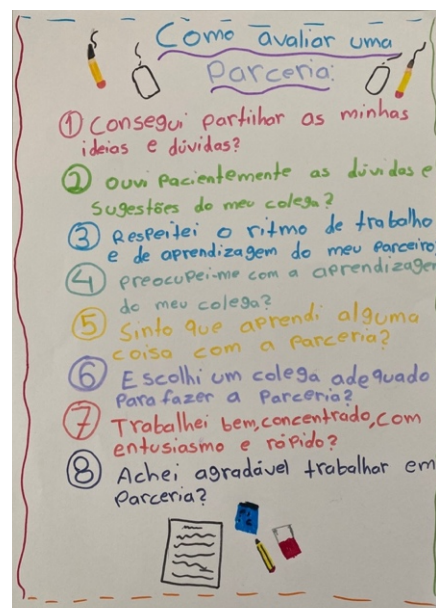 Como avaliar uma
Parceria:
① Consegui partilhar as minhas
ideias e dúvidas?
② ouvi pacientemente as dúvidas e
sugestões do meu colega?
③ Respeitei o ritmo de trabalho
e de aprendizagem do meu parceiro
④ preocupei-me com a aprendizagem
do meu colega?
⑤ Sinto que aprendi alguma
coisa com a parceria?
⑥ Escolhi um colega adequado
para fazer a parceria?
⑦ Trabalhei bem, concentrado, com
entusiasmo e rápido?
⑧ Achei agradável trabalhar em
parceria?